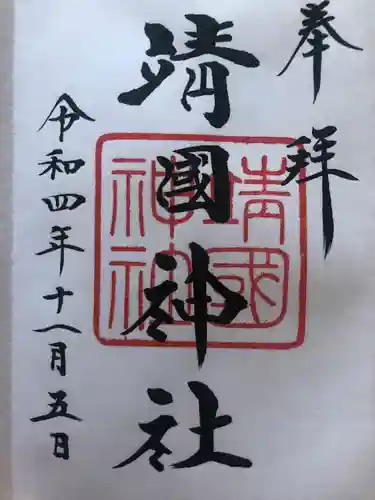 奉拝
靖國神社
靖國神社
令和四年十一月五日